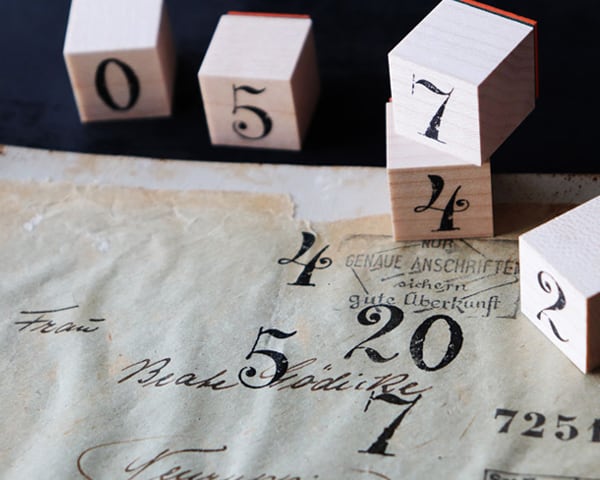 0
5
7
4
2
4
NUR
GENAUE ANSCHRIFTEN
sichern
gute Überkunft
20
Frau
5
Beate Gödicke
7
7251